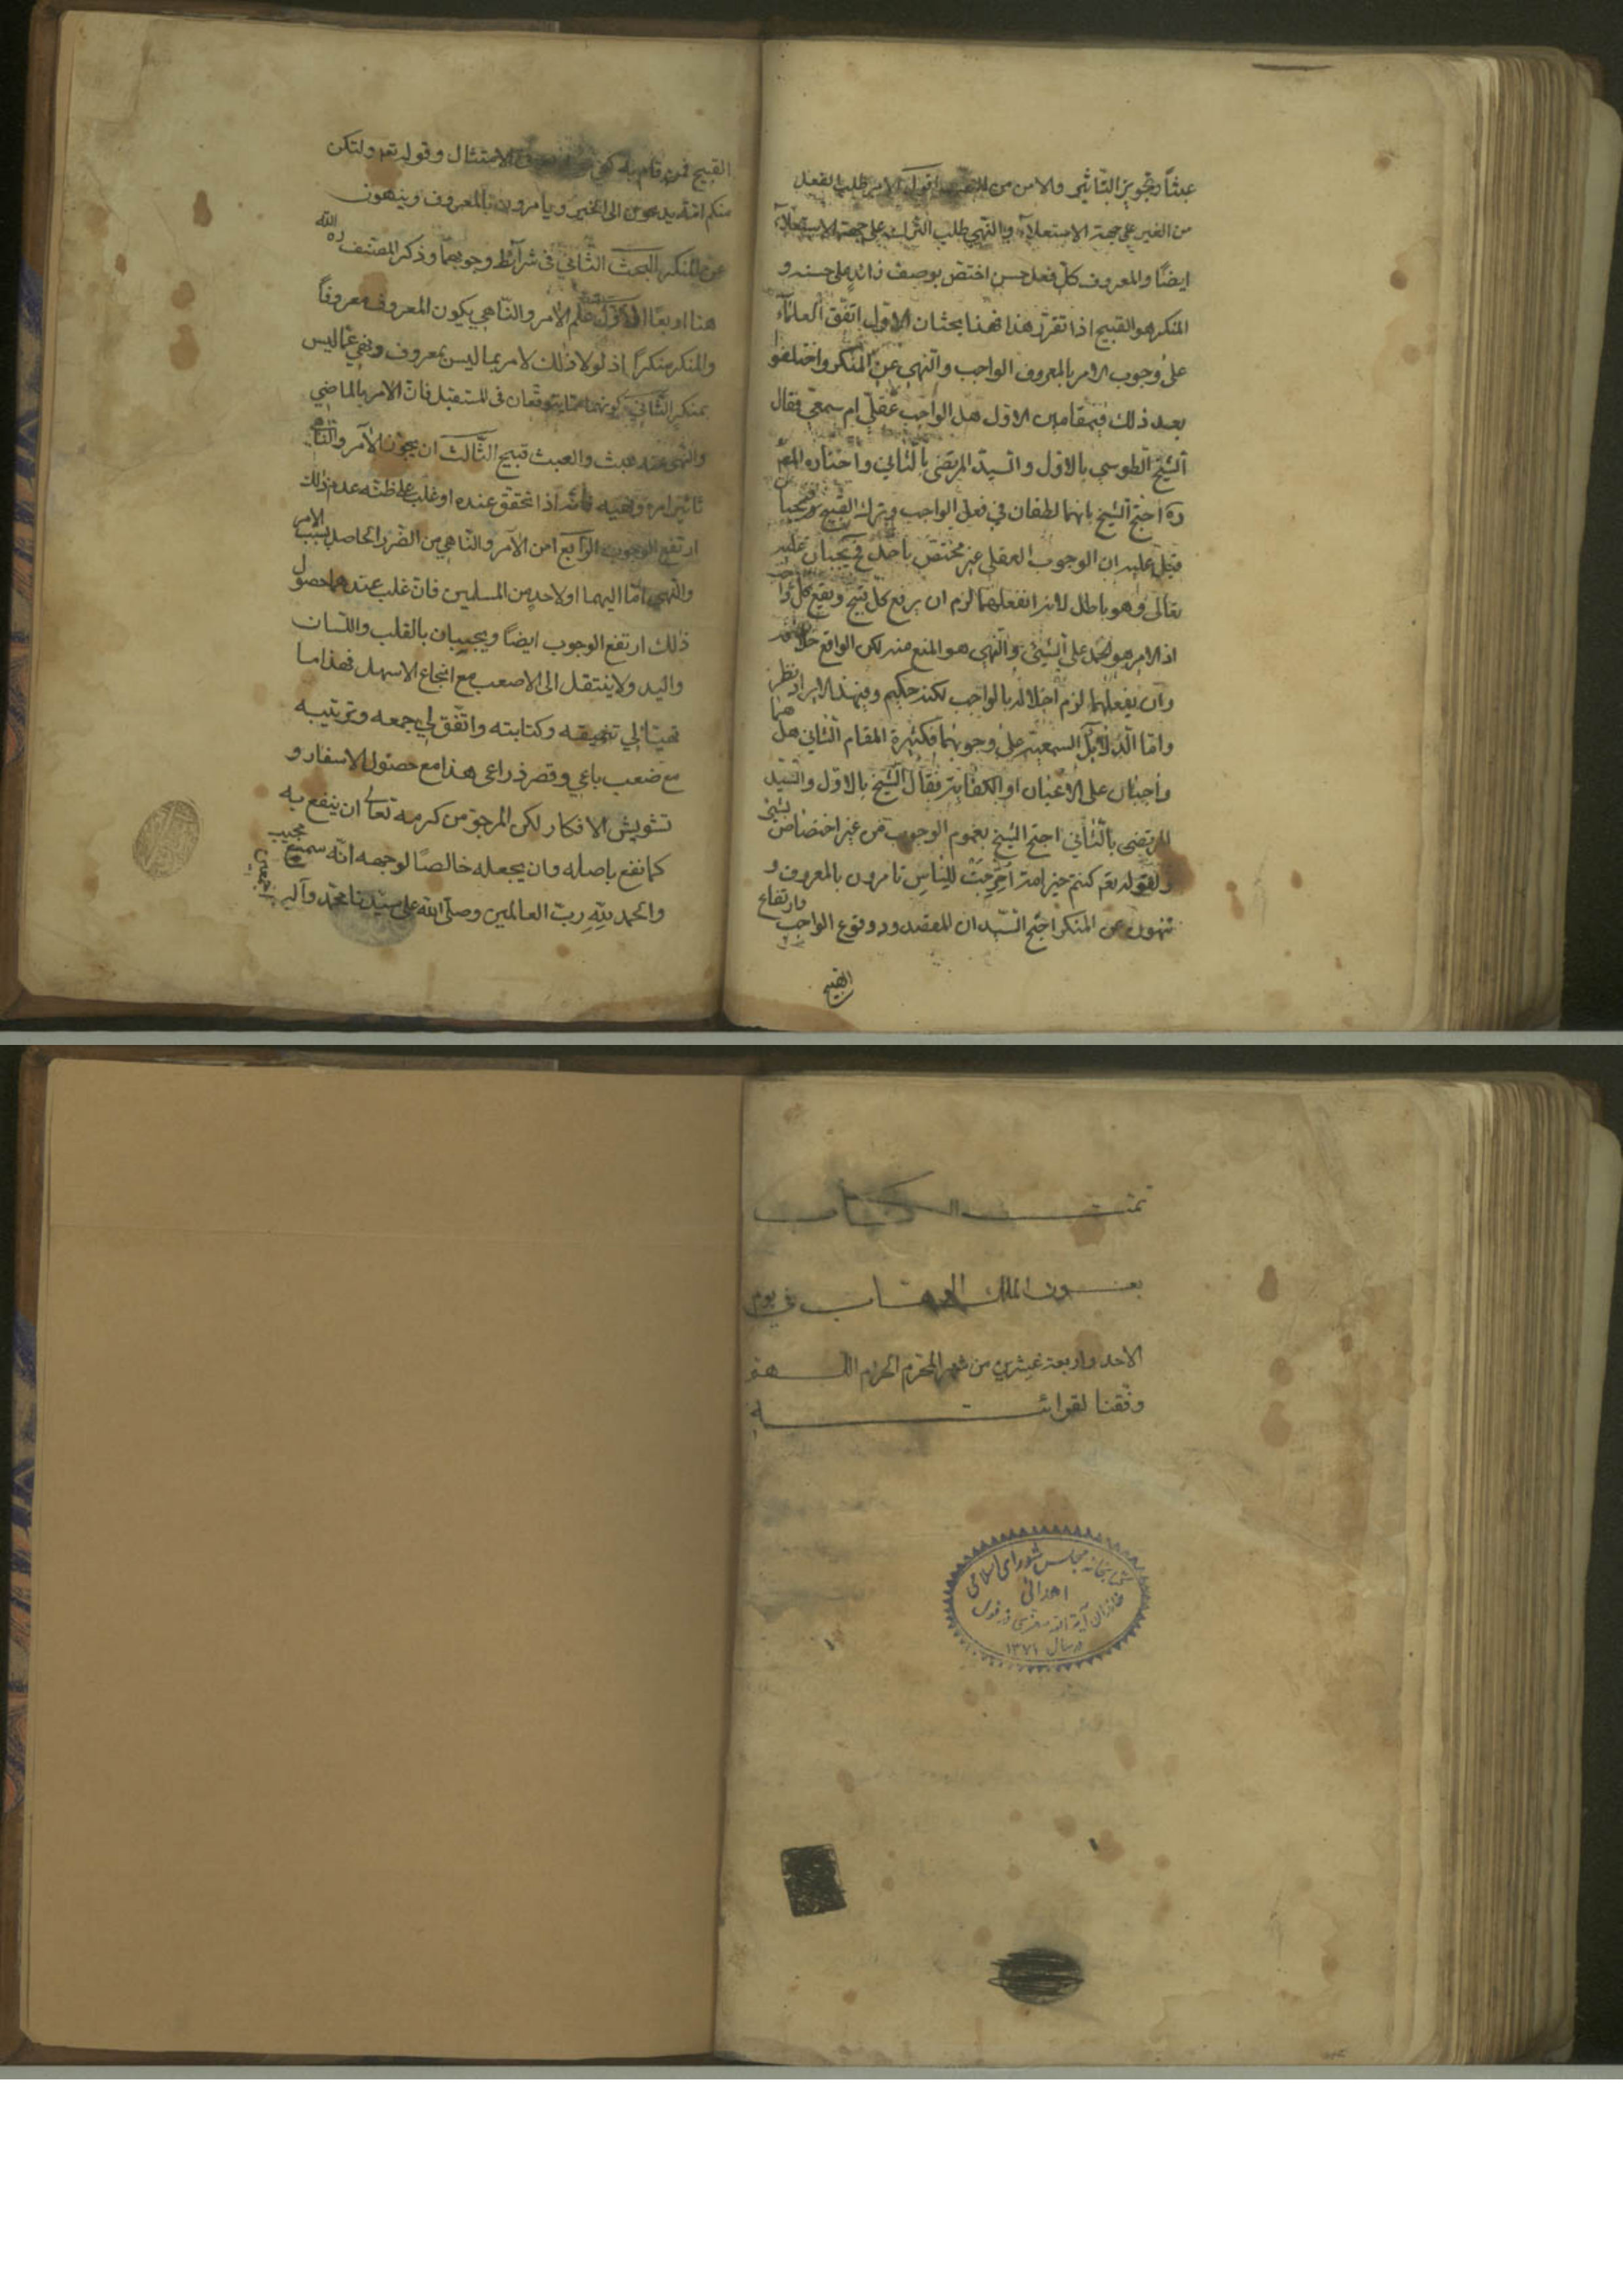 عبثاً وتجويز التأثير والامن من الضرر اقول الامر طلب الفعل
من الغير على جهة الاستعلاء والنهي طلب الترك على جهة الاستعلاء
ايضاً والمعروف كل فعل حسن اختص بوصف زائد على حسنه و
المنكر هو القبيح اذا تقرر هذا فهنا بحثان الاول اتفق العلماء
على وجوب الامر بالمعروف الواجب والنهي عن المنكر واختلفوا
بعد ذلك في مقامين الاول هل الواجب عقلي ام سمعي فقال
الشيخ الطوسي بالاول والسيد المرتضى بالثاني واختاره المص
ره احتج الشيخ بانهما لطفان في فعل الواجب وترك القبيح فيجبا
قيل عليه ان الوجوب العقلي غير مختص باحد فح يجبان عليه
تعالى وهو باطل لانه ان فعلهما لزم ان يرفع كل قبيح ويقع كل واجب
اذ الامر هو الحمل على الشيئ والنهي هو المنع منه لكن الواقع خلافه
وان لم يفعلهما لزم اخلاله بالواجب لكنه حكيم وفي هذا الايراد نظر
واما الدلائل السمعية على وجوبهما فكثيرة المقام الثاني هل هما
واجبان على الاعيان او الكفاية فقال الشيخ بالاول والسيد
المرتضى بالثاني احتج الشيخ بعموم الوجوب من غير اختصاص بشئ
ولقوله تعم كنتم خير امة اخرجت للناس تامرون بالمعروف و
تنهون عن المنكر احتج السيد ان المقصود وقوع الواجب وارتفاع
القبيح
القبيح فمن قام به كفى الامتثال وقوله تعم ولتكن
منكم امة يدعون الى الخير ويامرون بالمعروف وينهون
عن المنكر البحث الثاني في شرائط وجوبهما وذكر المصنف ره الله
هنا اربعا الاول علم الامر والناهي بكون المعروف معروفاً
والمنكر منكراً اذ لولا ذلك لامر بما ليس بمعروف ونهي عما ليس
بمنكر الثاني كونهما مما يتوقعان في المستقبل فان الامر بالماضي
والنهي عنه عبث والعبث قبيح الثالث ان يجوز الآمر والناهي
تاثير امره ونهيه فانه اذا تحقق عنده او غلب على ظنه عدم ذلك
ارتفع الوجوب الرابع امن الآمر والناهي من الضرر الحاصل بسبب الامر
والنهي اما اليهما او لاحد من المسلمين فان غلب عندهما حصول
ذلك ارتفع الوجوب ايضاً ويجبان بالقلب واللسان
واليد ولا ينتقل الى الاصعب مع انجاع الاسهل فهذا ما
تهيئا لي تنميقه وكتابته واتفق لي جمعه وترتيبه
مع ضعب باعي وقصر ذراعي هذا مع حصول الاسفار و
تشويش الافكار لكن المرجو من كرمه تعالى ان ينفع به
كما نفع باصله وان يجعله خالصاً لوجهه انه سميع مجيب
والحمد لله رب العالمين وصلى الله على سيدنا محمد وآله اجمعين
تمت الكتاب
بعون الملك الوهاب في يوم
الاحد واربعة عشرين من شهر المحرم الحرام اللهم
وفقنا لقرائته
كتابخانه مجلس شورای اسلامی
اهدائی
خاندان آیة الله معزی دزفولی
در سال ۱۳۷۱